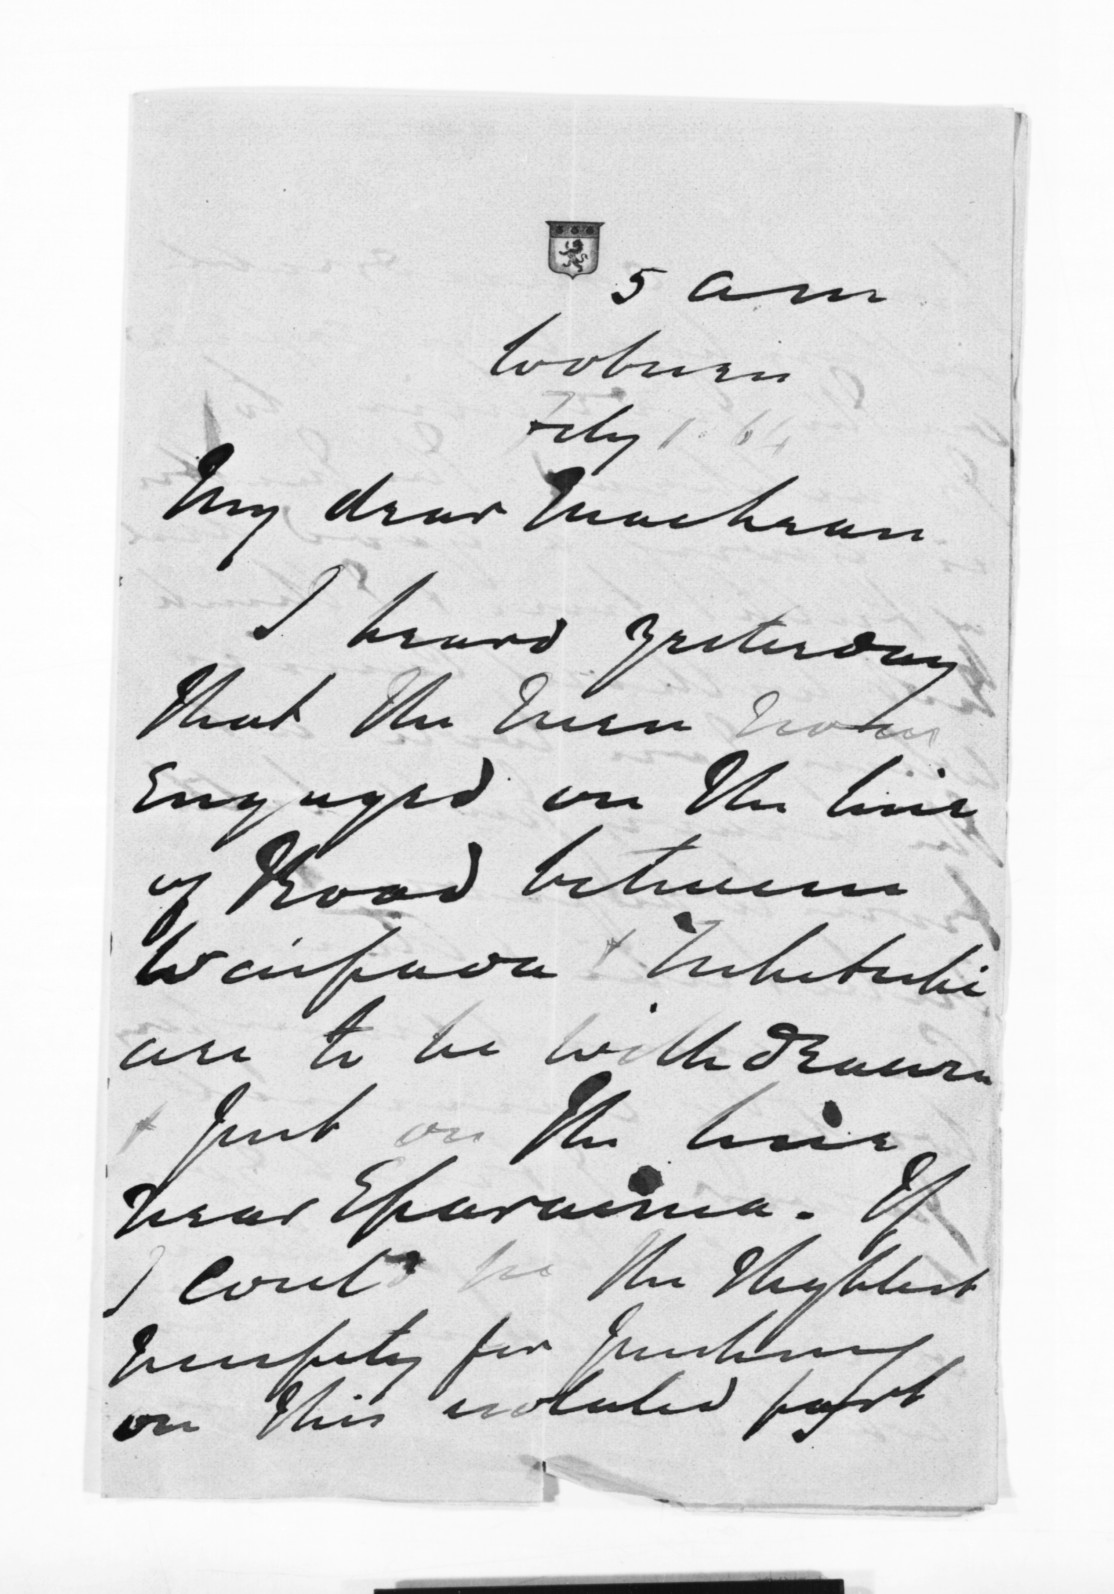 5 am
Woburn
July 1. 64
My dear Maclean
I heard yesterday
that the men now
engaged on the line
of Road between
Waipawa & Tukituki
are to be withdrawn
& put on the line
near Eparaima. If
I could see the slightest
necessity for pushing
on this isolated part